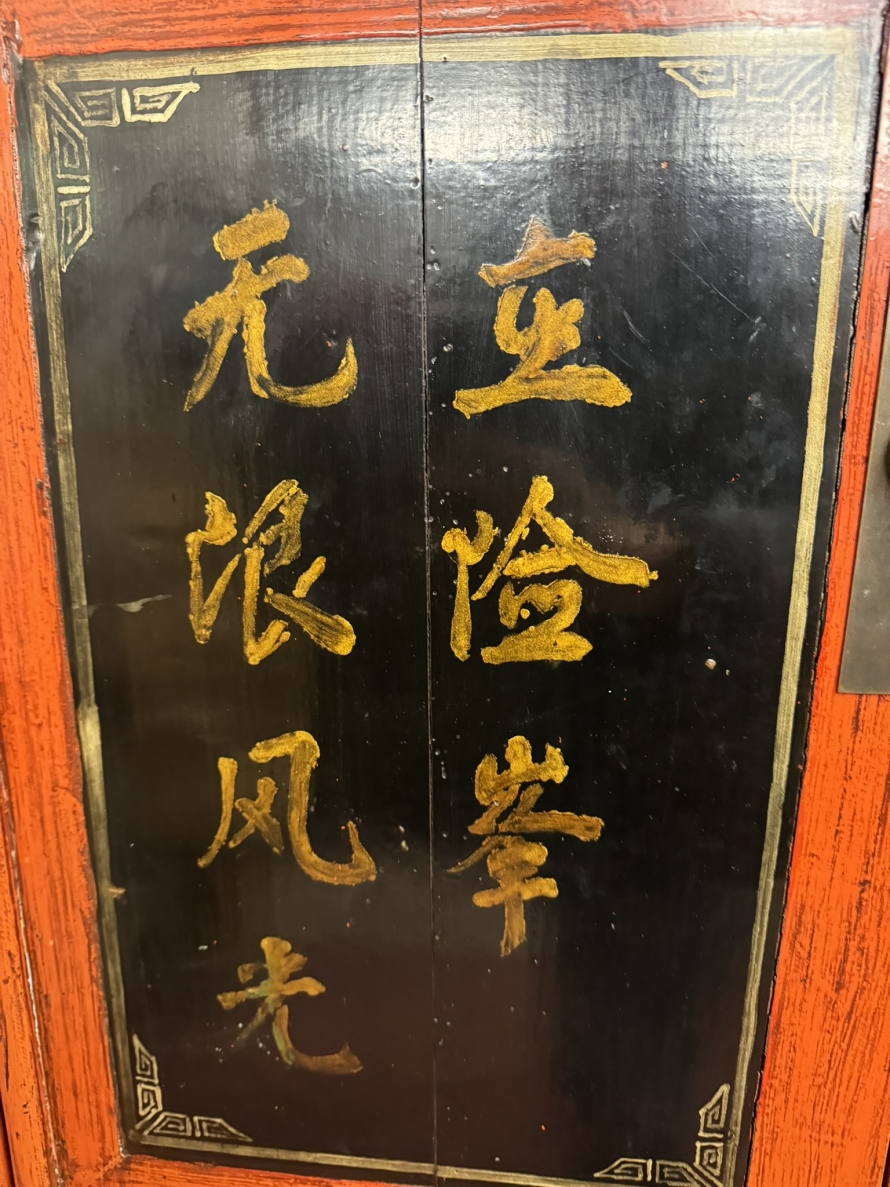 无限风光
在险峯